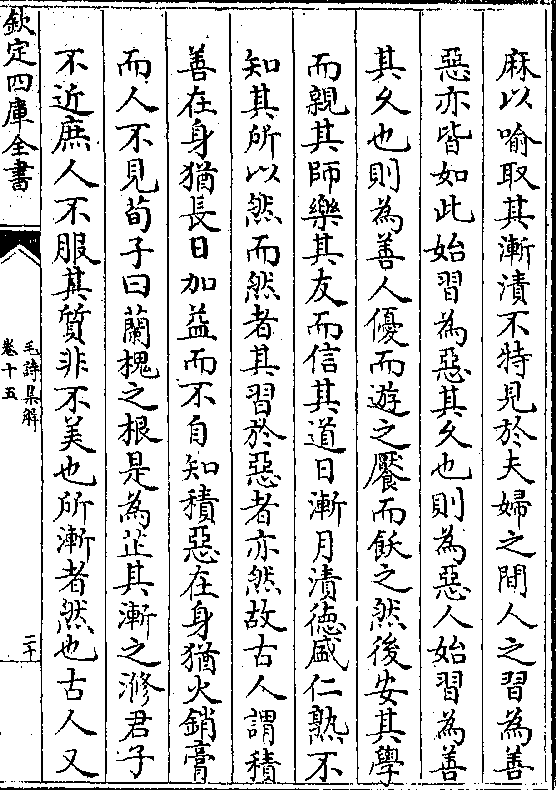 麻以喻取其漸漬不特見於夫婦之間人之習為善
惡亦皆如此始習為惡其久也則為惡人始習為善
其久也則為善人優而遊之饜而飫之然後安其學
而親其師樂其友而信其道日漸月漬德盛仁熟不
知其所以然而然者其習於惡者亦然故古人謂積
善在身猶長日加益而不自知積惡在身猶火銷膏
而人不見荀子曰蘭槐之根是為芷其漸之滫君子
不近庶人不服其質非不美也所漸者然也古人又
欽定四庫全書
毛詩集解
卷十五
二十